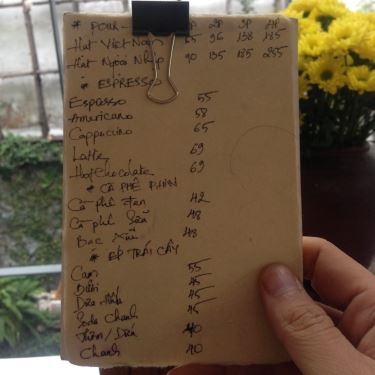 * POUR- 1P 2P 3P 4P
Hạt Việt Nam 65 96 138 185
Hạt Ngoại Nhập 90 135 185 255
* ESPRESSO
Espresso 55
Americano 58
Cappuccino 65
Latte 69
Hot Chocolate 69
* CÀ PHÊ PHIN
Cà phê đen 42
Cà phê sữa 48
Bạc xỉu 48
* ÉP TRÁI CÂY
Cam 55
Bưởi 45
Dưa Hấu 45
Soda Chanh 45
Thơm / Dứa 40
Chanh 40